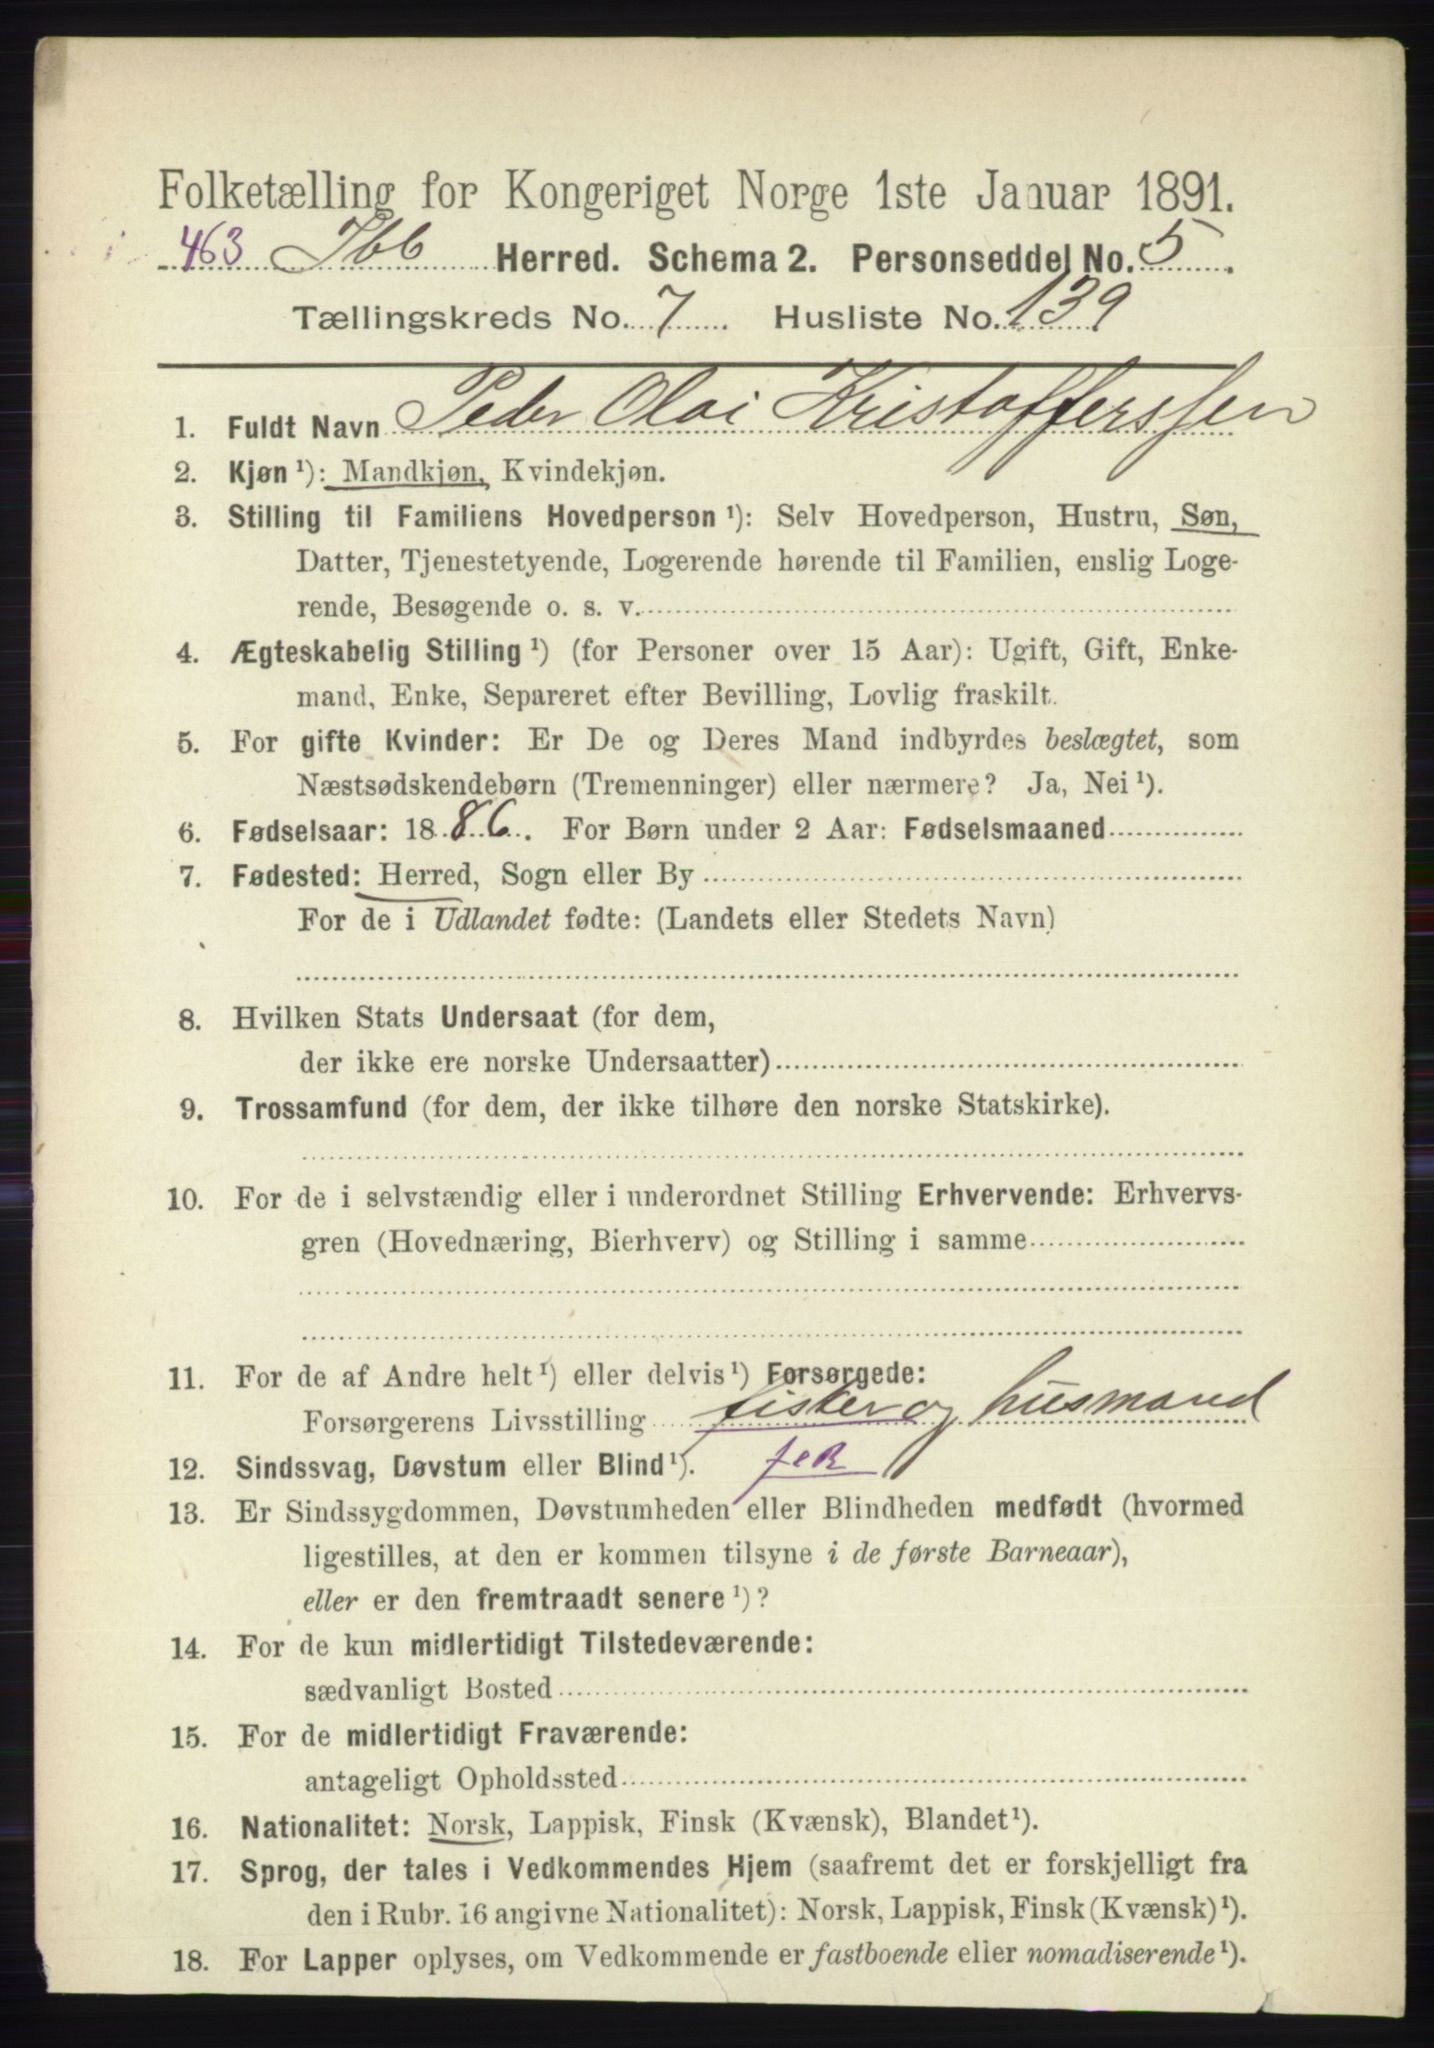 Folketælling for Kongeriget Norge 1ste Januar 1891.
463 Ibb Herred. Schema 2. Personseddel No. 5.
Tællingskreds No. 7. Husliste No. 139
1. Fuldt Navn Peder Olai Kristofferssen
2. Kjøn ¹): Mandkjøn, Kvindekjøn.
3. Stilling til Familiens Hovedperson ¹): Selv Hovedperson, Hustru, Søn,
Datter, Tjenestetyende, Logerende hørende til Familien, enslig Loge-
rende, Besøgende o. s. v.
4. Ægteskabelig Stilling ¹) (for Personer over 15 Aar): Ugift, Gift, Enke-
mand, Enke, Separeret efter Bevilling, Lovlig fraskilt.
5. For gifte Kvinder: Er De og Deres Mand indbyrdes beslægtet, som
Næstsødskendebørn (Tremenninger) eller nærmere? Ja, Nei ¹).
6. Fødselsaar: 1886. For Børn under 2 Aar: Fødselsmaaned
7. Fødested: Herred, Sogn eller By
For de i Udlandet fødte: (Landets eller Stedets Navn)
8. Hvilken Stats Undersaat (for dem,
der ikke ere norske Undersaatter)
9. Trossamfund (for dem, der ikke tilhøre den norske Statskirke).
10. For de i selvstændig eller i underordnet Stilling Erhvervende: Erhvervs-
gren (Hovednæring, Bierhverv) og Stilling i samme
11. For de af Andre helt ¹) eller delvis ¹) Forsørgede:
Forsørgerens Livsstilling fisker og husmand
12. Sindssvag, Døvstum eller Blind ¹).
13. Er Sindssygdommen, Døvstumheden eller Blindheden medfødt (hvormed
ligestilles, at den er kommen tilsyne i de første Barneaar),
eller er den fremtraadt senere ¹)?
14. For de kun midlertidigt Tilstedeværende:
sædvanligt Bosted
15. For de midlertidigt Fraværende:
antageligt Opholdssted
16. Nationalitet: Norsk, Lappisk, Finsk (Kvænsk), Blandet ¹).
17. Sprog, der tales i Vedkommendes Hjem (saafremt det er forskjelligt fra
den i Rubr. 16 angivne Nationalitet): Norsk, Lappisk, Finsk (Kvænsk) ¹).
18. For Lapper oplyses, om Vedkommende er fastboende eller nomadiserende ¹).